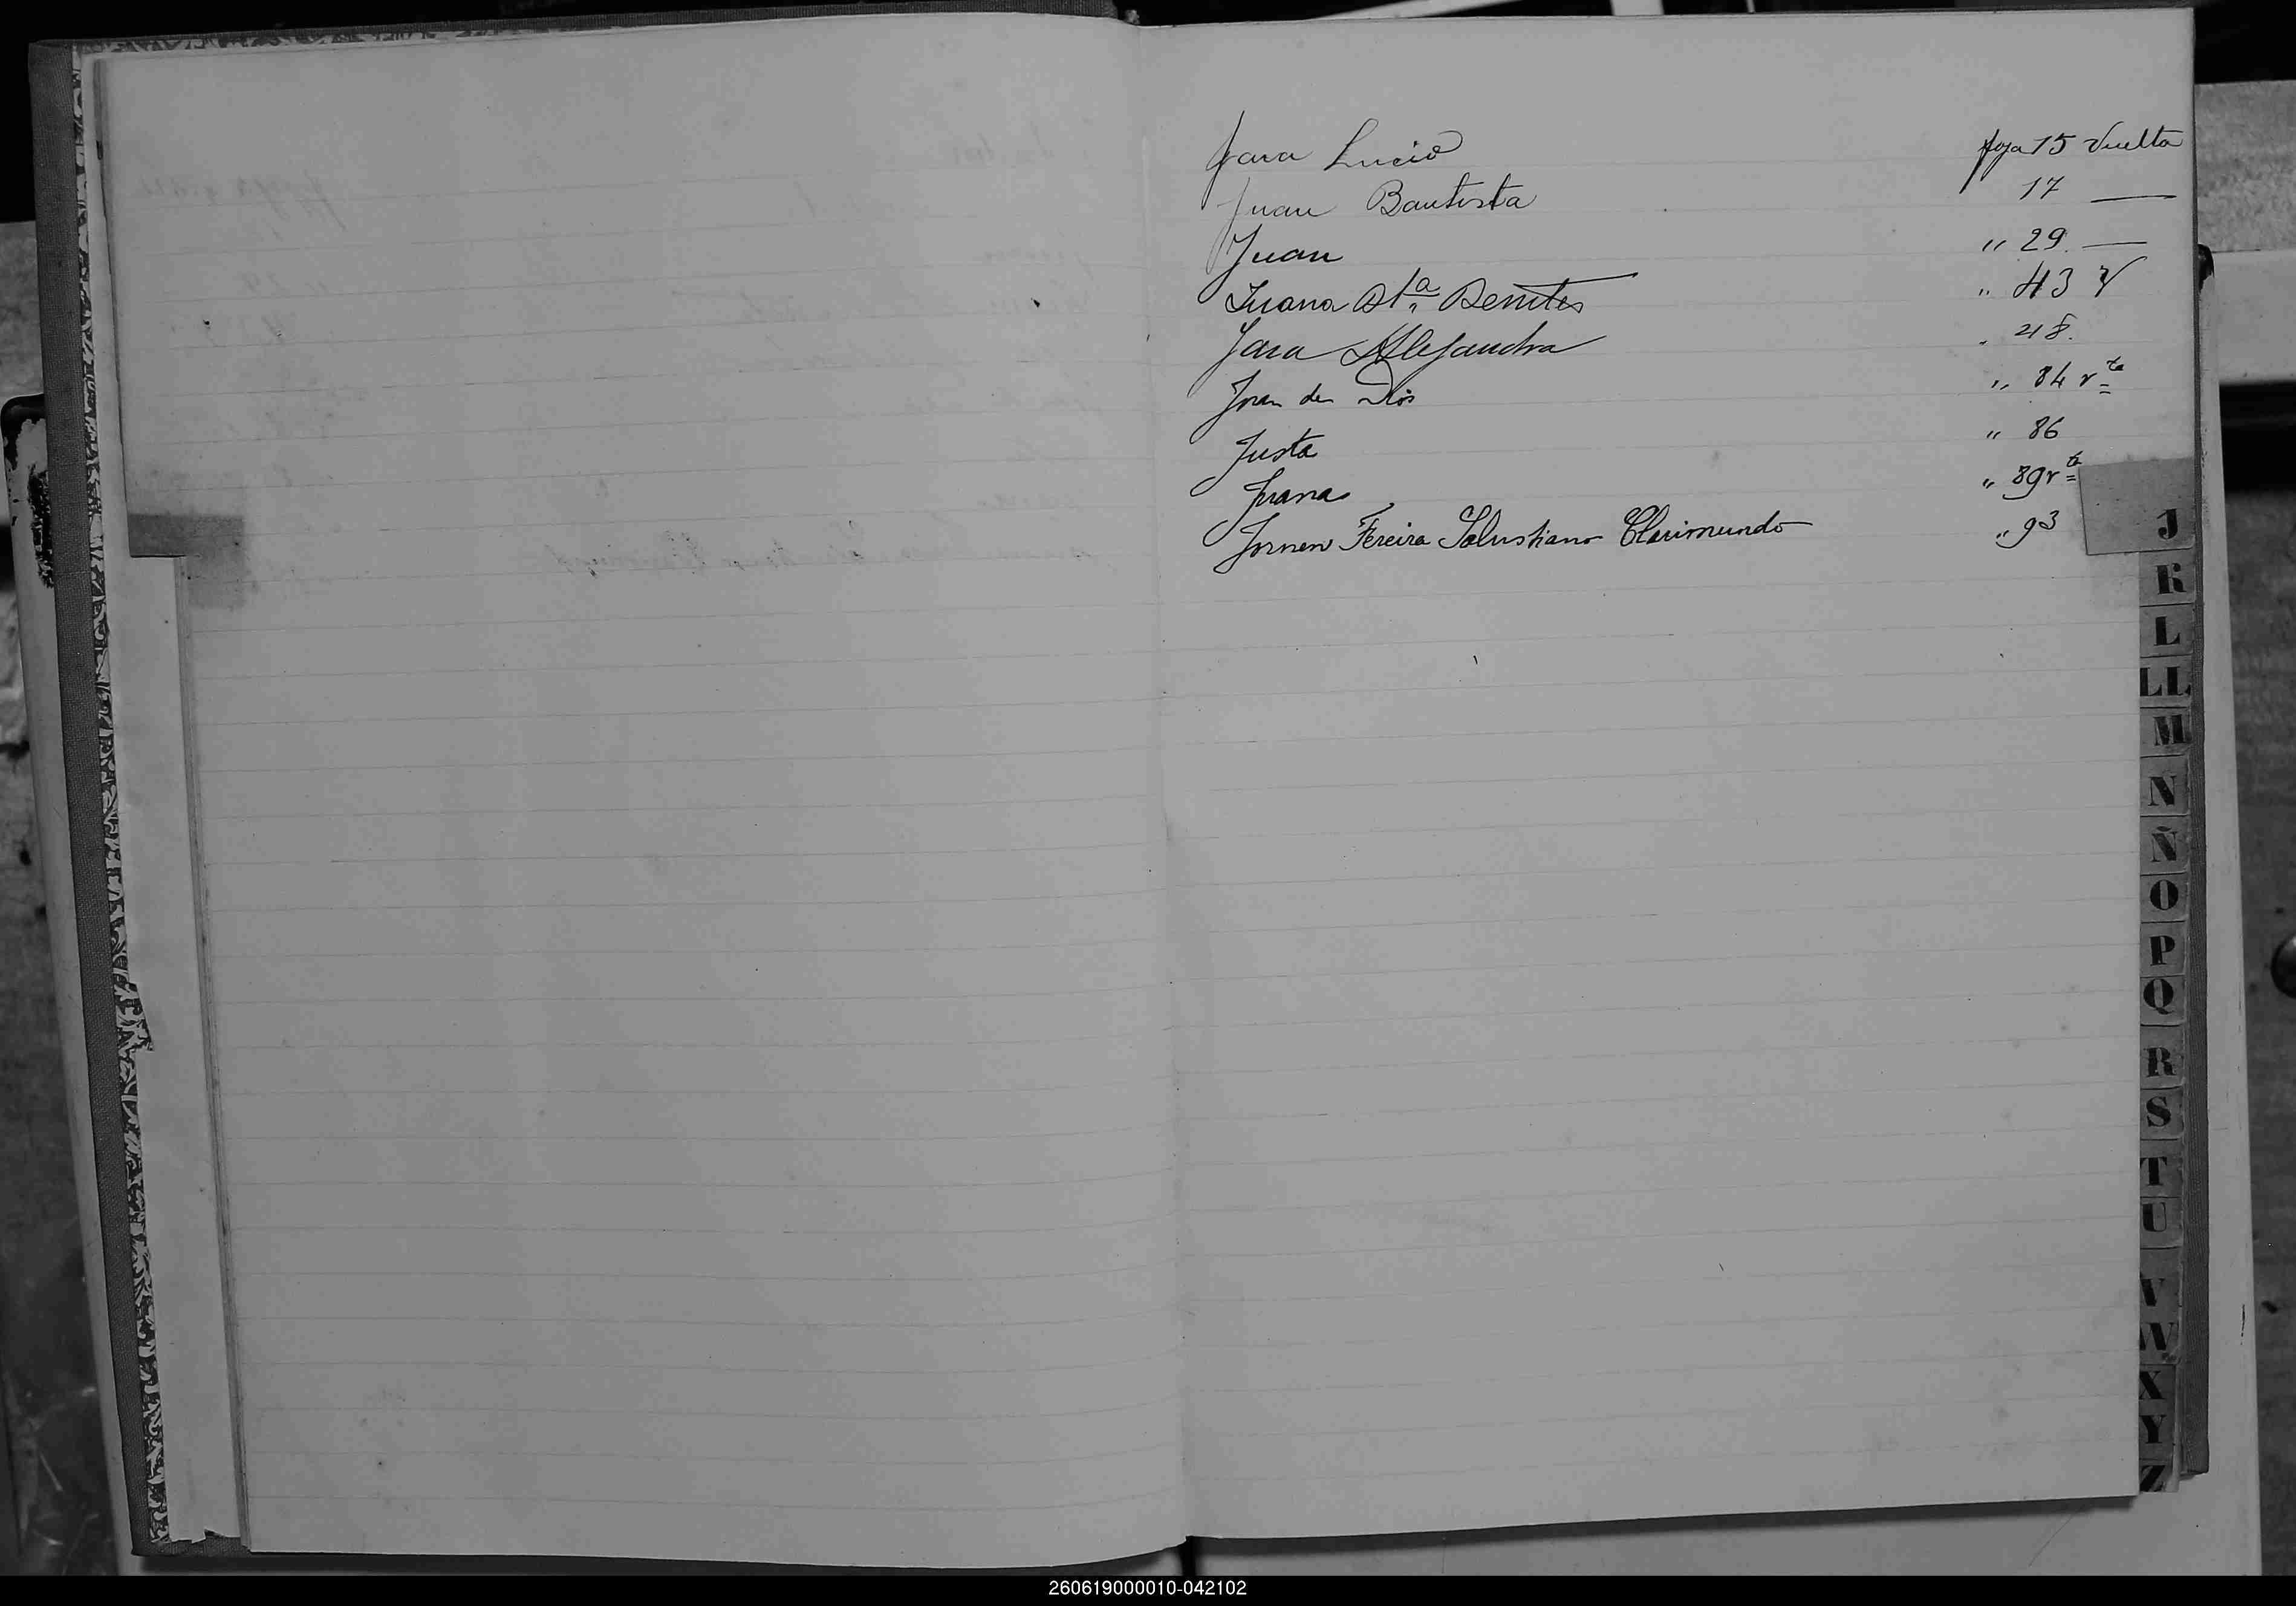 Jara Lucio foja 15 Vuelta
Juan Bautista 17 —
Juan " 29. —
Juana Bta Benites " 43 V
Jara Alejandra " 48.
Juan de Dios " 84 vta
Justa " 86
Juana " 89 vta
Fereira Salustiano Clarimundo " 93
J
K
L
LL
M
N
Ñ
O
P
Q
R
S
T
U
V
W
X
Y
Z
260619000010-042102